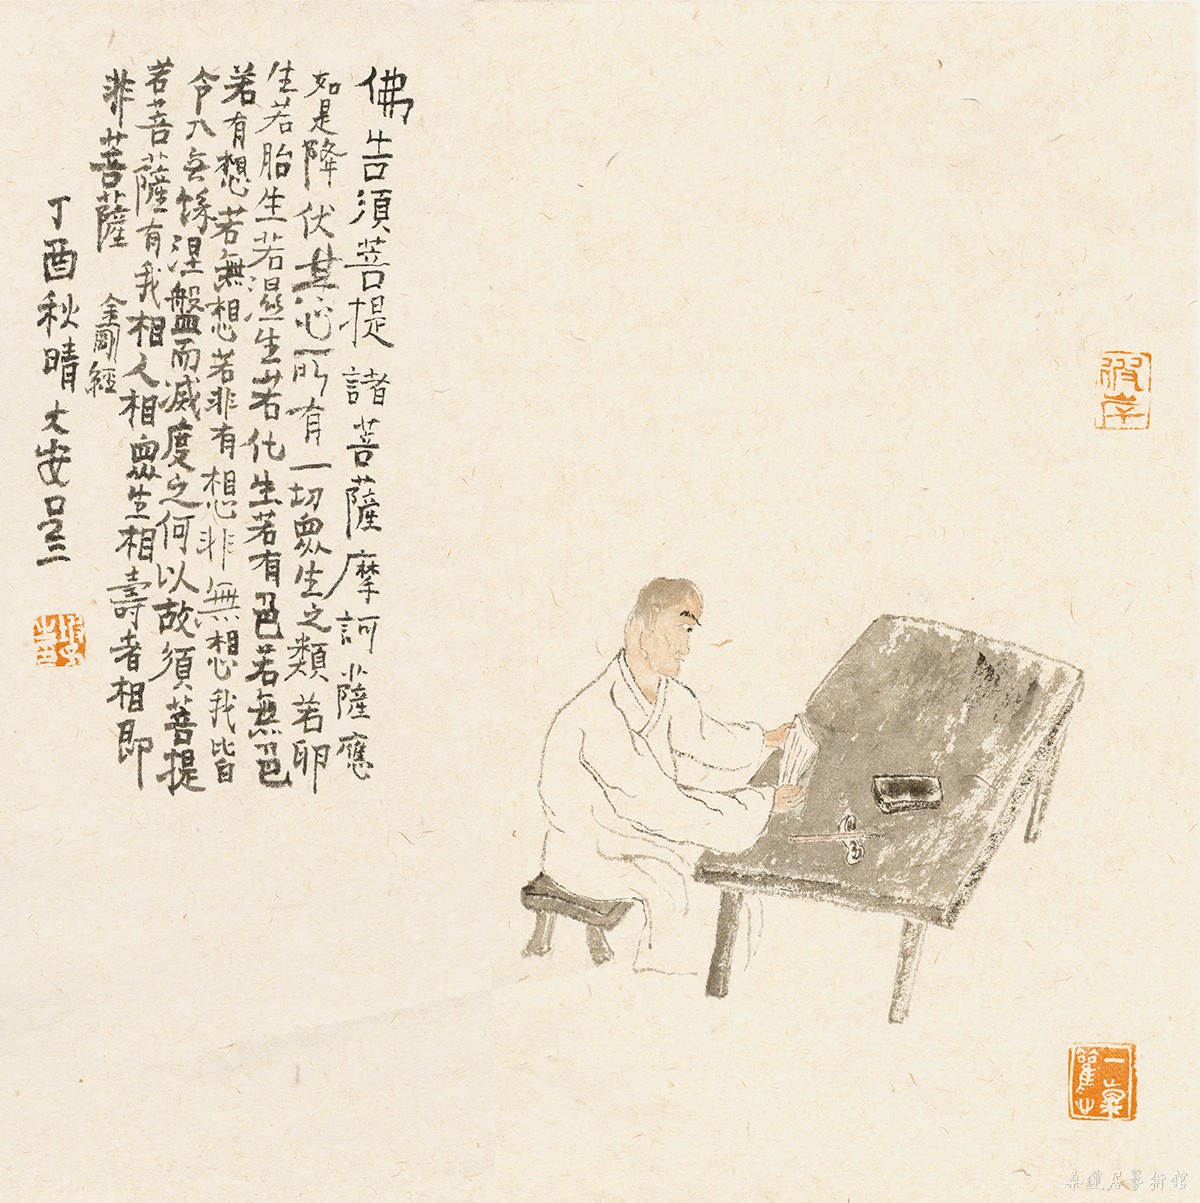 佛告須菩提諸菩薩摩訶薩應
如是降伏其心所有一切眾生之類若卵
生若胎生若濕生若化生若有色若無色
若有想若無想若非有想非無想我皆
令入无餘涅盤而滅度之何以故須菩提
若菩薩有我相人相眾生相壽者相即
非菩薩
金剛經
丁酉秋晴大安
彼岸
桑蓮居藝術館